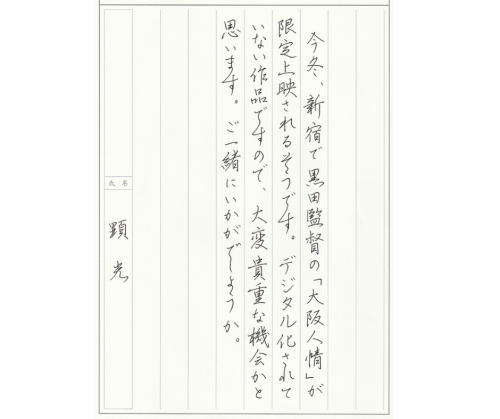 今冬、新宿で黒田監督の「大阪人情」が
限定上映されるそうです。デジタル化されて
いない作品ですので、大変貴重な機会かと
思います。ご一緒にいかがでしょうか。
氏名
顕光